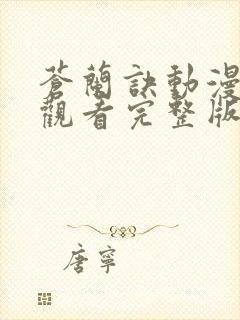 蒼蘭訣動漫
觀看完整版
唐寧